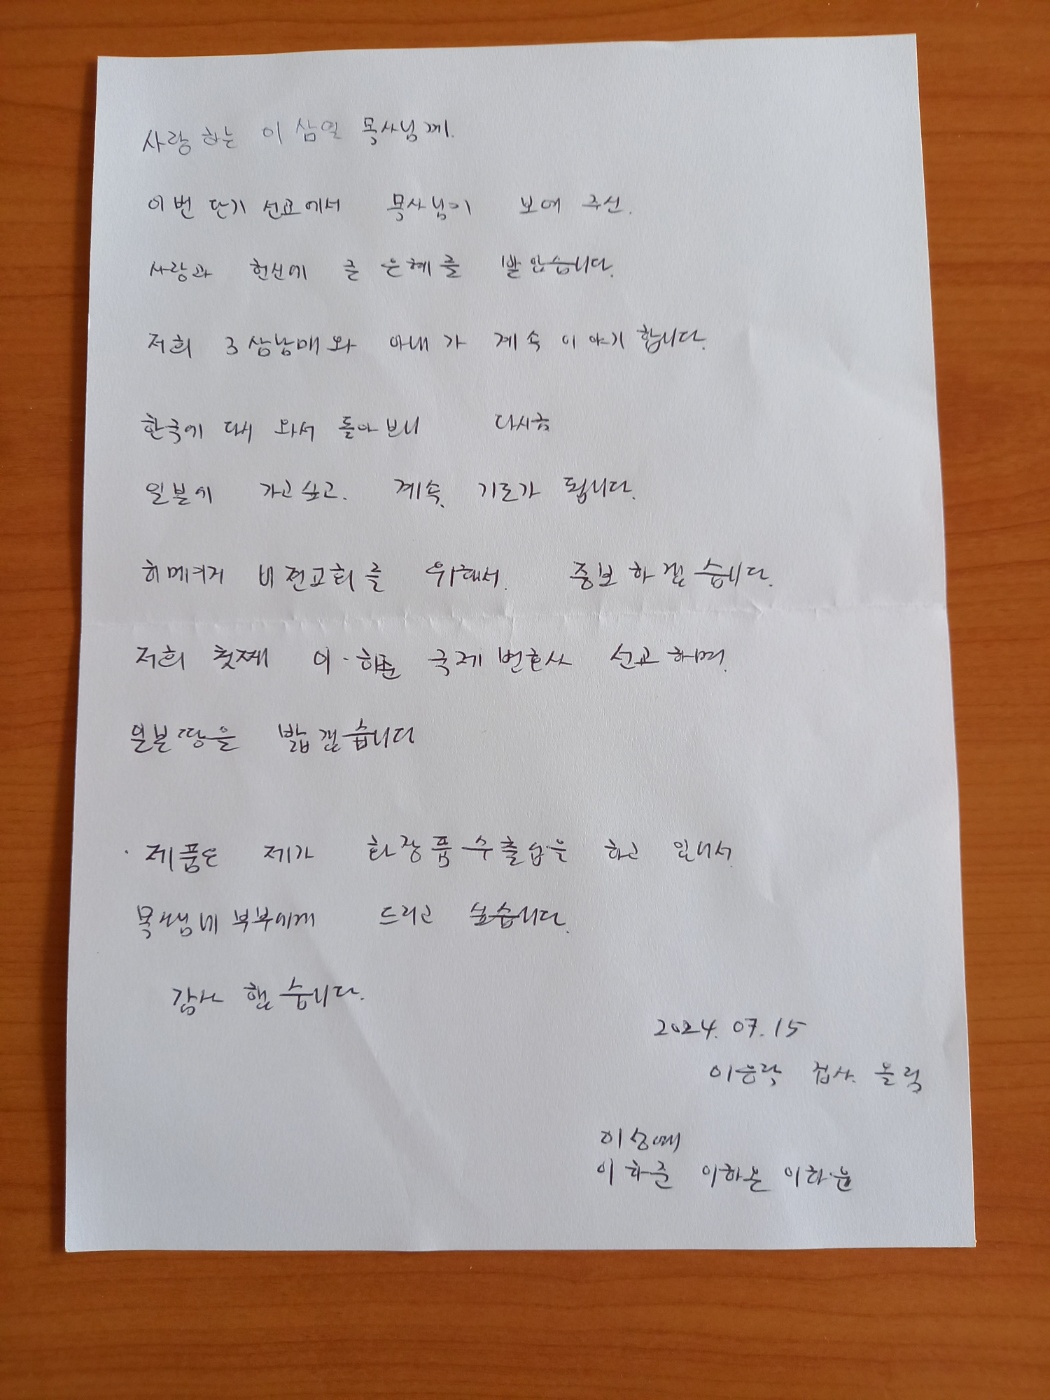 사랑하는 이삼일 목사님께.
이번 단기 선교에서 목사님이 보여 주신.
사랑과 헌신에 큰 은혜를 받았습니다.
저희 3삼남매와 아내가 계속 이야기 합니다.
한국에 다시 와서 돌아보니 다시금
일본에 가고싶고. 계속, 기도가 됩니다.
히메지 비전교회를 위해서. 중보하겠습니다.
저희 첫째 이·하준 국제변호사 선교하며.
일본땅을 밟겠습니다
· 제품은 제가 화장품수출업을 하고 있어서.
목사님네 부부에게 드리고 싶습니다.
감사 했습니다.
2024. 07. 15
이승락 집사. 올림
이하준 이하온 이하윤